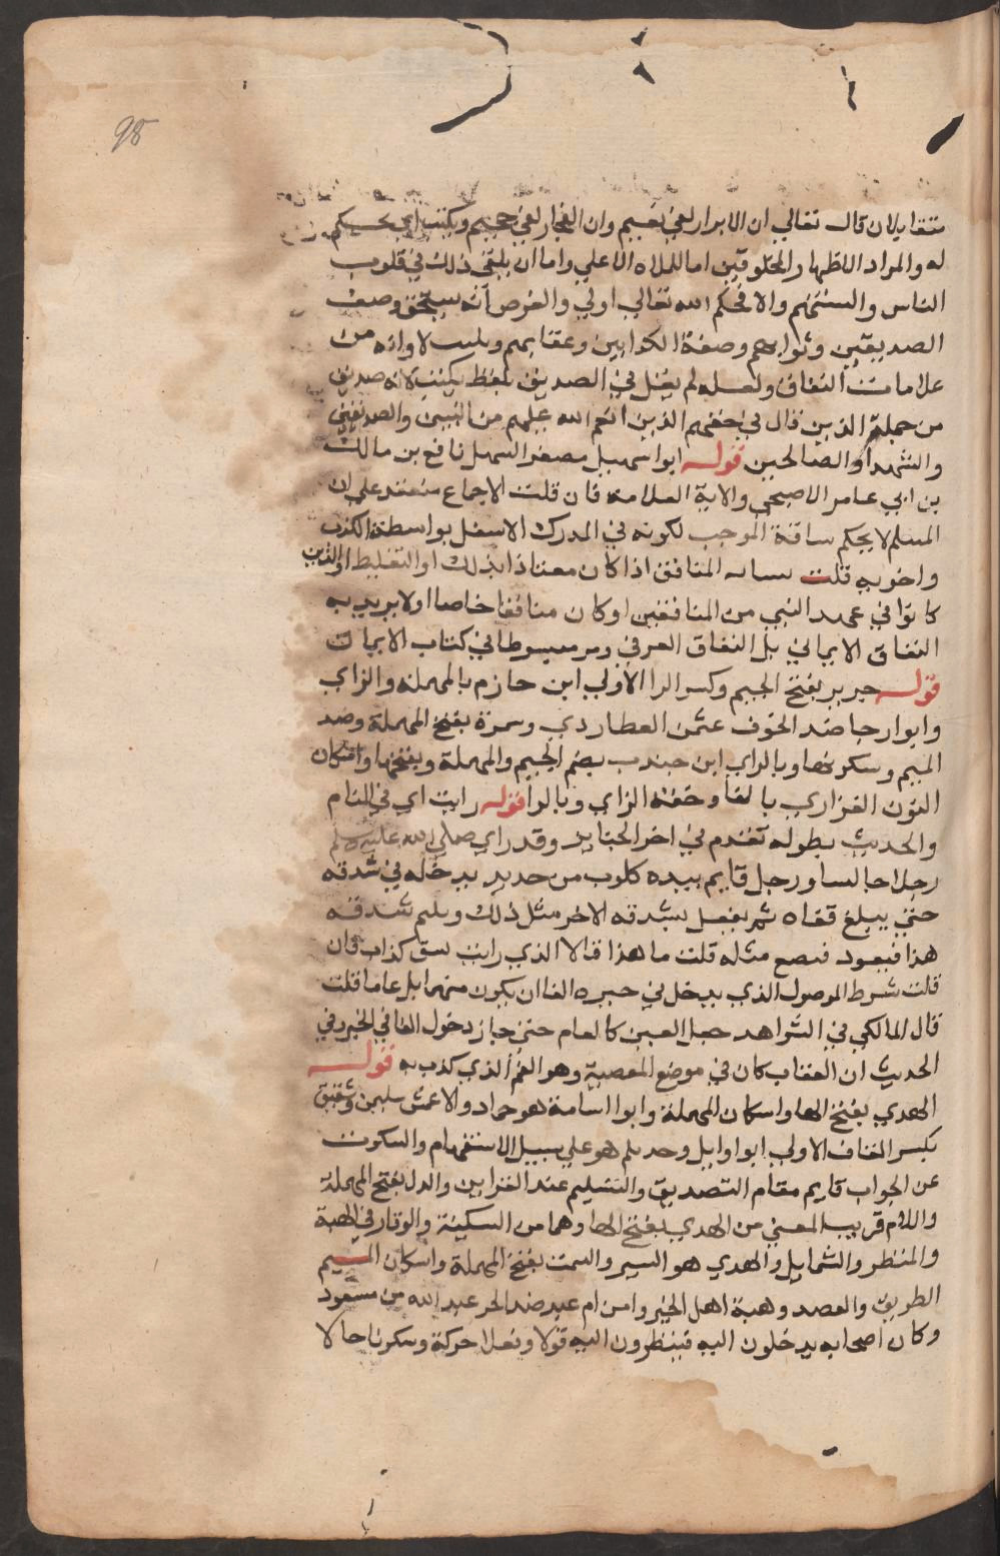 98
متقابلان قال تعالي ان الابرار لفي نعيم وان الفجار لفي جحيم ويكتب اي يحكم
له والمراد الاظهار للمخلوقين اما للملاء الاعلي واما ان يلقي ذلك في قلوب
الناس والسنتهم والا فحكم الله تعالي اولي والغرض انه يستحق وصف
الصديقين وثوابهم وصفة الكذابين وعقابهم وليس لا وانه من
علامات النفاق ولعله لم يقل في الصديق بلفظ يكتب لانه صديق
من جملة الذين قال في حقهم الذين انعم الله عليهم من النبيين والصديقين
والشهدا والصالحين قوله ابو سهيل مصغر السهل نافع بن مالك
بن ابي عامر الاصبحي والاية العلامة فان قلت الاجماع منعقد علي ان
المسلم لا يحكم بنفاقه الموجب لكونه في الدرك الاسفل بواسطة الكذب
واخويه قلت المنافق اذا كان معتادا بذلك او التغليظ او الذين
كانوا في عهد النبي من المنافقين او كان منافقا خاصا او لا يريد به
النفاق الايماني بل النفاق العرفي ومر مبسوطا في كتاب الايمان
قوله جرير بفتح الجيم وكسر الرا الاولي ابن حازم بالمهملة والزاي
وابو رجا ضد الخوف عمن العطاردي وسمرة بفتح المهملة وضم
الميم وسكونها وبالراي ابن جندب بضم الجيم والمهملة وبفتحها واسكان
النون الفزاري بالفا وخفة الزاي وبالرا قوله رايت اي في المنام
والحديث بطوله تقدم في اخر الجنايز وقد راي صلي الله عليه وسلم
رجلا جالسا ورجل قايم بيده كلوب من حديد يدخله في شدقه
حتي يبلغ قفاه ثم يفعل بشدقه الاخر مثل ذلك ويليم شدقه
هذا فيعود فيصنع مثله قلت ما هذا قالا الذي رايت يشق كذاب فان
قلت شرط الموصول الذي يدخل في خبره الفا ان يكون مبهما بل عاما قلت
قال المالكي في الشواهد جعل العين كالعام حتي جاز دخول الفا في الخبر وفي
الحديث ان العقاب كان في موضع المعصية وهو الفم الذي كذب به قوله
الهدي بفتح الها واسكان المهملة وابو اسامة هو حماد والاعمش سليمن وشقيق
بكسر القاف الاولي ابو وايل وحديثكم هو علي سبيل الاستفهام والسكوت
عن الجواب قايم مقام التصديق والتسليم عند القراين والدل بفتح المهملة
واللام قريب المعني من الهدي بفتح الها وهما من السكينة والوقار في الهيبة
والمنظر والشمايل والهدي هو السير والسمت بفتح المهملة واسكان الميم
الطريق والقصد وهيبة اهل الخير وابن ام عبد ضد الحر عبد الله بن مسعود
وكان اصحابه يدخلون اليه فينظرون اليه قولا وفعلا حركة وسكونا حالا